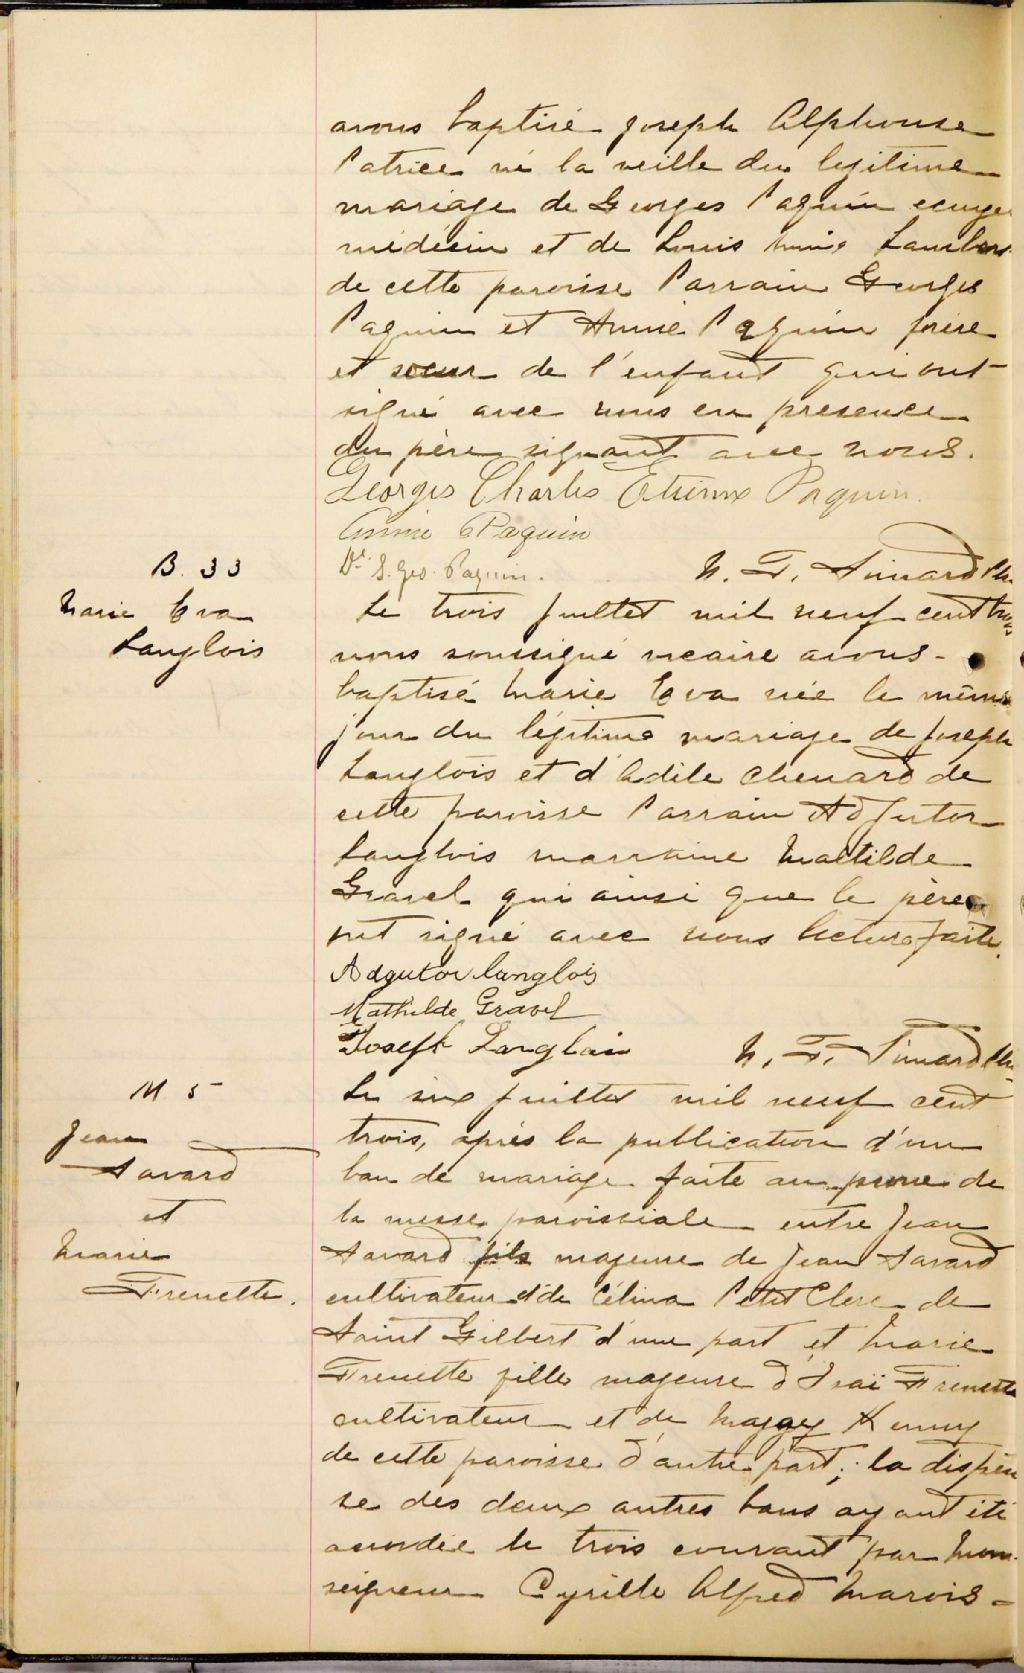 avons baptisé Joseph Alphonse
Patrice né la veille du legitime
mariage de Georges Paquin ecuyer
médécin et de Louis Annie Lambert
de cette paroisse Parrain Georges
Paquin et Annie Paquin frère
et soeur de l'enfant qui ont
signé avec nous en presence
du père signant avec nous.
Georges Charles Etienne Paquin.
Annie Paquin
Dr. S. Geo. Paquin.
N. F. Simard Ptre
B. 33
Marie Eva
Langlois
Le trois Juillet mil neuf cent trois
nous soussigné vicaire avons-
baptisé Marie Eva née le même
jour du légitime mariage de Joseph
Langlois et d'Adile Chenard de
cette paroisse Parrain Adjutor
Langlois marraine Maltilde
Gravel qui ainsi que le père
ont signé avec nous lecture faite.
Adgutor Langlois
Mathilde Gravel
Joseph Langlais
N. F. Simard Ptre
M 5
Jean
Savard
et
Marie
Frenette.
Le six Juillet mil neuf cent
trois, après la publication d'un
ban de mariage faite au prone de
la messe paroissiale entre Jean
Savard fils majeure de Jean Savard
cultivateur et de Célina Petit Clerc de
Saint Gilbert d'une part et Marie
Frenette fille majeure d'Isaï Frenette
cultivateur et de Maggey Kenny
de cette paroisse d'autre part; la dispen
se des deux autres bans ayant été
accordée le trois courant par Mon-
seigneur Cyrille Alfred Marois-